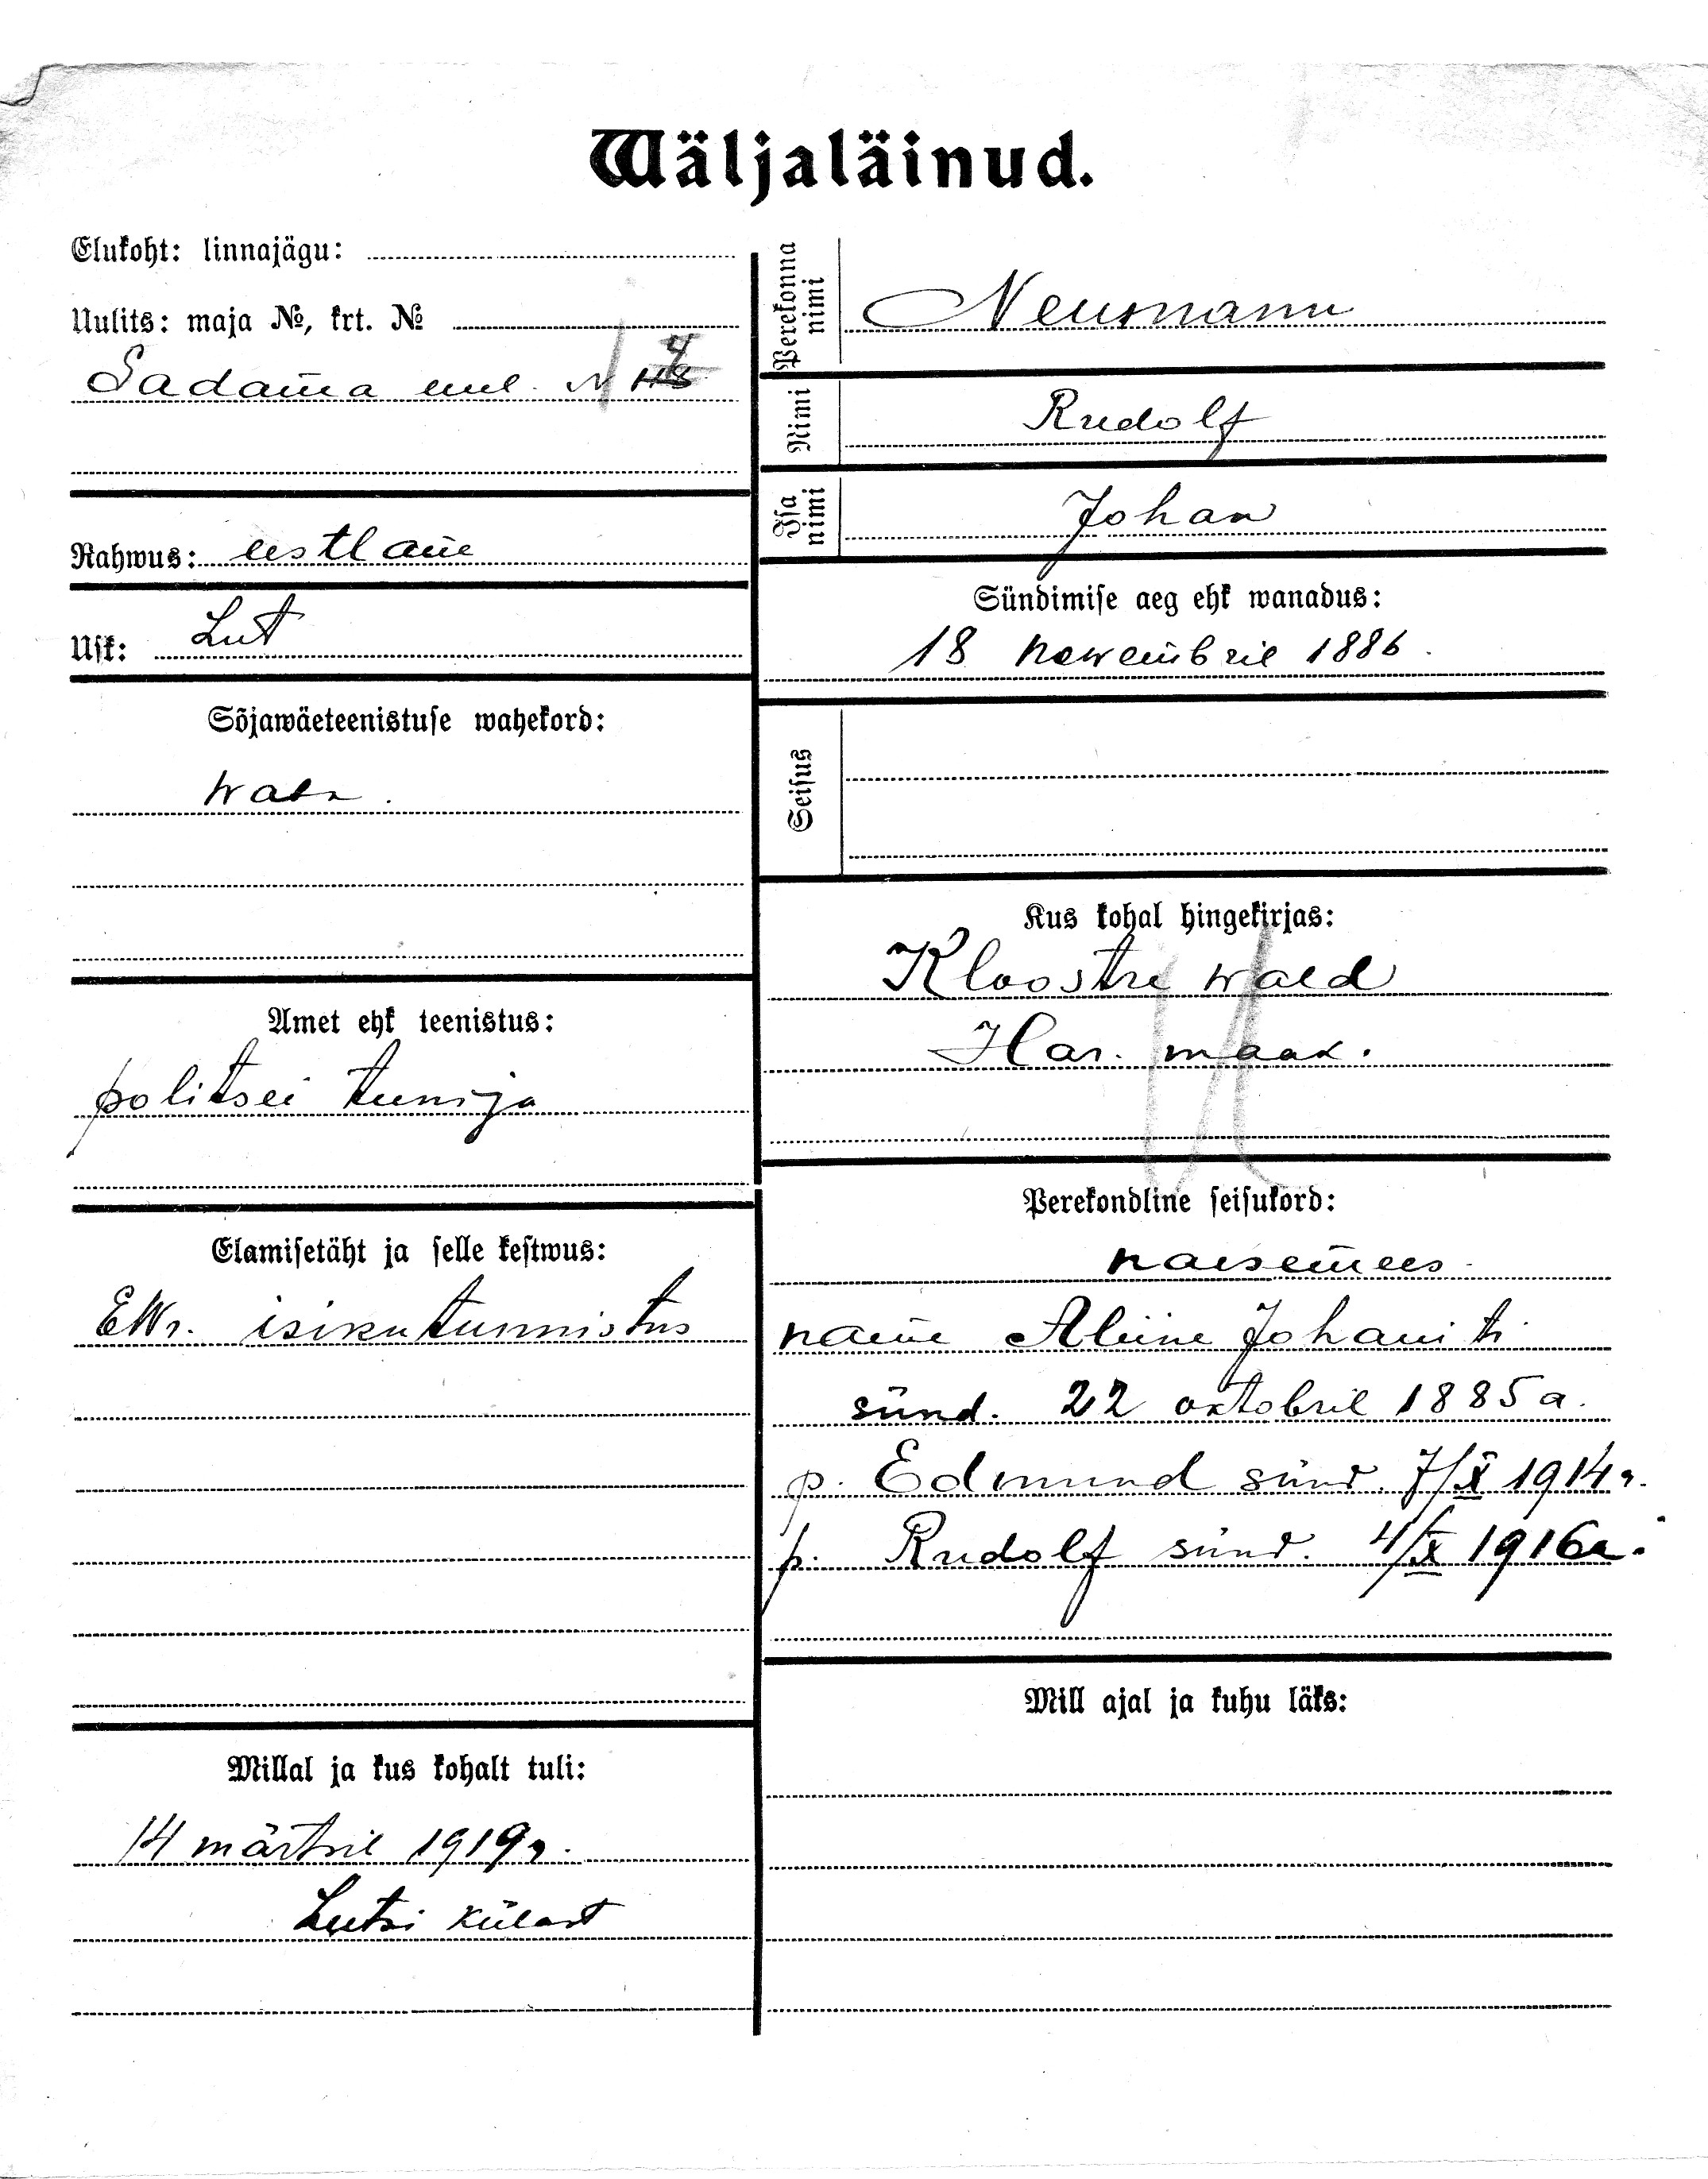 Wäljaläinud.
Elukoht: linnajägu:
Uulits: maja №, krt. №
Sadama uul. N 4
Rahwus: eestlane
Usk: Lut
Sõjawäeteenistuse wahekord:
waba.
Amet ehk teenistus:
politsei teenija
Elamisetäht ja selle kestwus:
EWr. isikutunnistus
Millal ja kus kohalt tuli:
14 märtsil 1919a.
külast
Perekonna nimi
Neumann
Nimi
Rudolf
Isa nimi
Johan
Sündimise aeg ehk wanadus:
18 nowembril 1886.
Seisus
Kus kohal hingekirjas:
Kloostre wald
Har. maak.
Perekondline seisukord:
naisemees
naine Aliine Johani t.
sünd. 22 oktobril 1885 a.
p. Edmund sünd. 7/X 1914 a.
p. Rudolf sünd. 4/IX 1916 a.
Mill ajal ja kuhu läks: